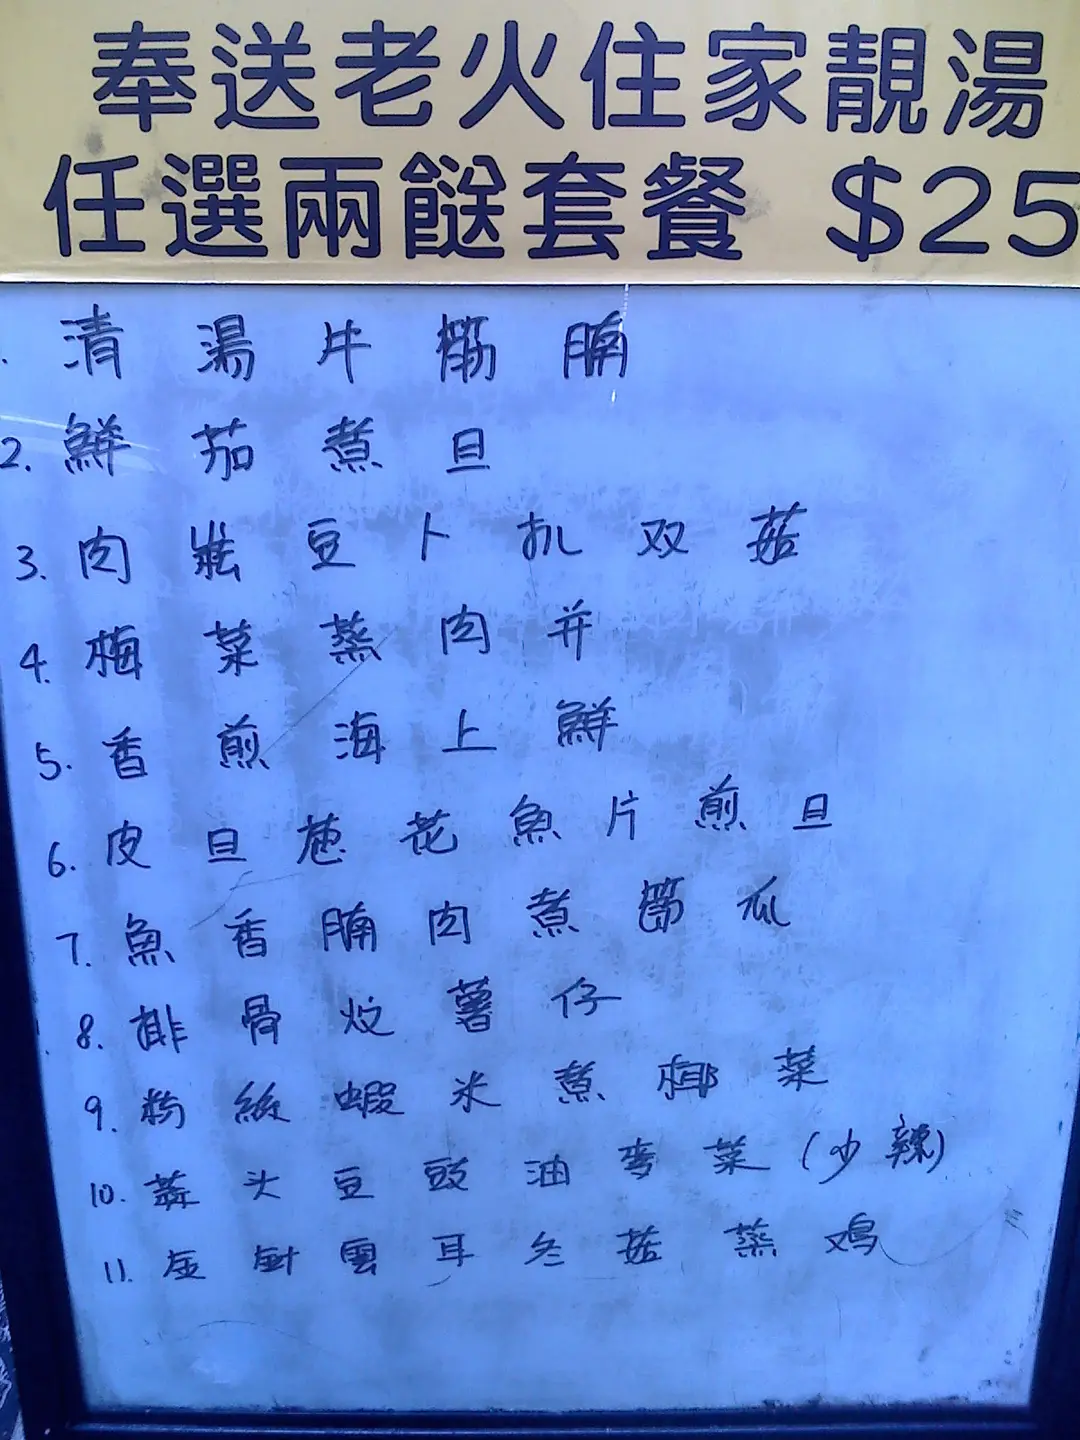 奉送老火住家靚湯
任選兩餸套餐 $25
. 清湯牛筋腩
2. 鮮茄煮旦
3. 肉豆卜扒双菇
4. 梅菜蒸肉并
5. 香煎海上鮮
6. 皮旦葱花魚片煎旦
7. 魚香腩肉煮節瓜
8. 排骨炆薯仔
9. 粉絲蝦米煮椰菜
10. 蒜头豆豉油麦菜(少辣)
11. 金針雲耳冬菇蒸鸡